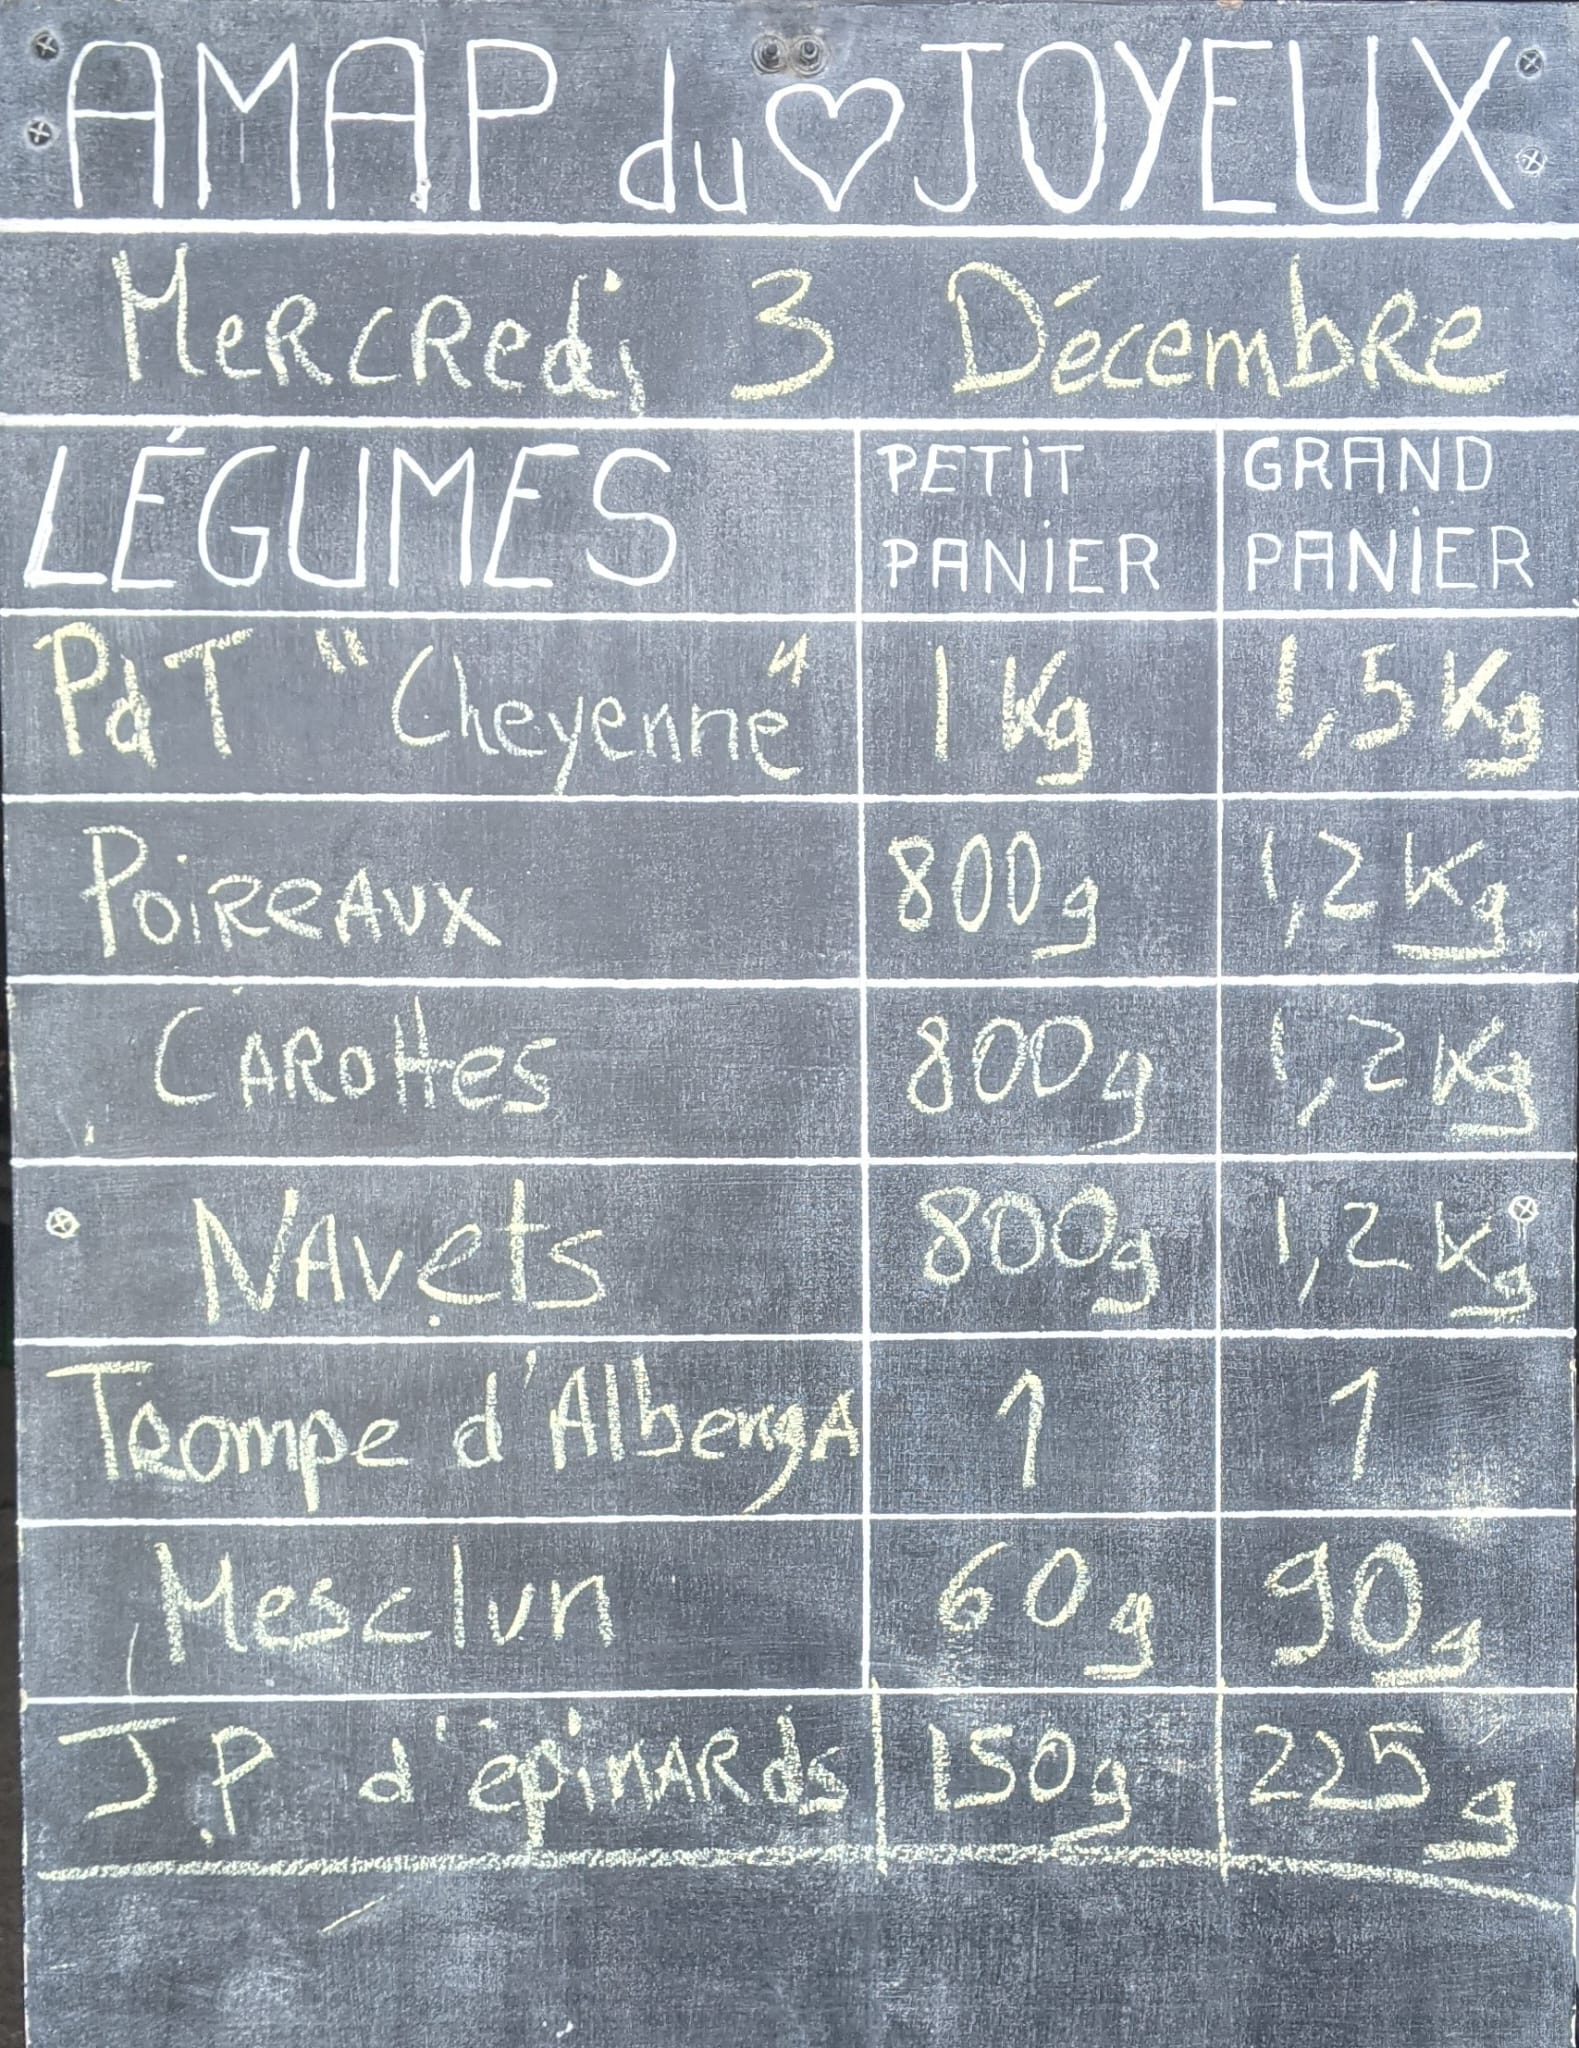 AMAP du ♡ JOYEUX
Mercredi 3 Décembre
LÉGUMES PETIT PANIER GRAND PANIER
PdT "Cheyenne" 1 Kg 1,5 Kg
Poireaux 800g 1,2 Kg
Carottes 800g 1,2 Kg
Navets 800g 1,2 Kg
Trompe d'Albenga 1 1
Mesclun 60g 90g
J.P d'épinards 150g 225g